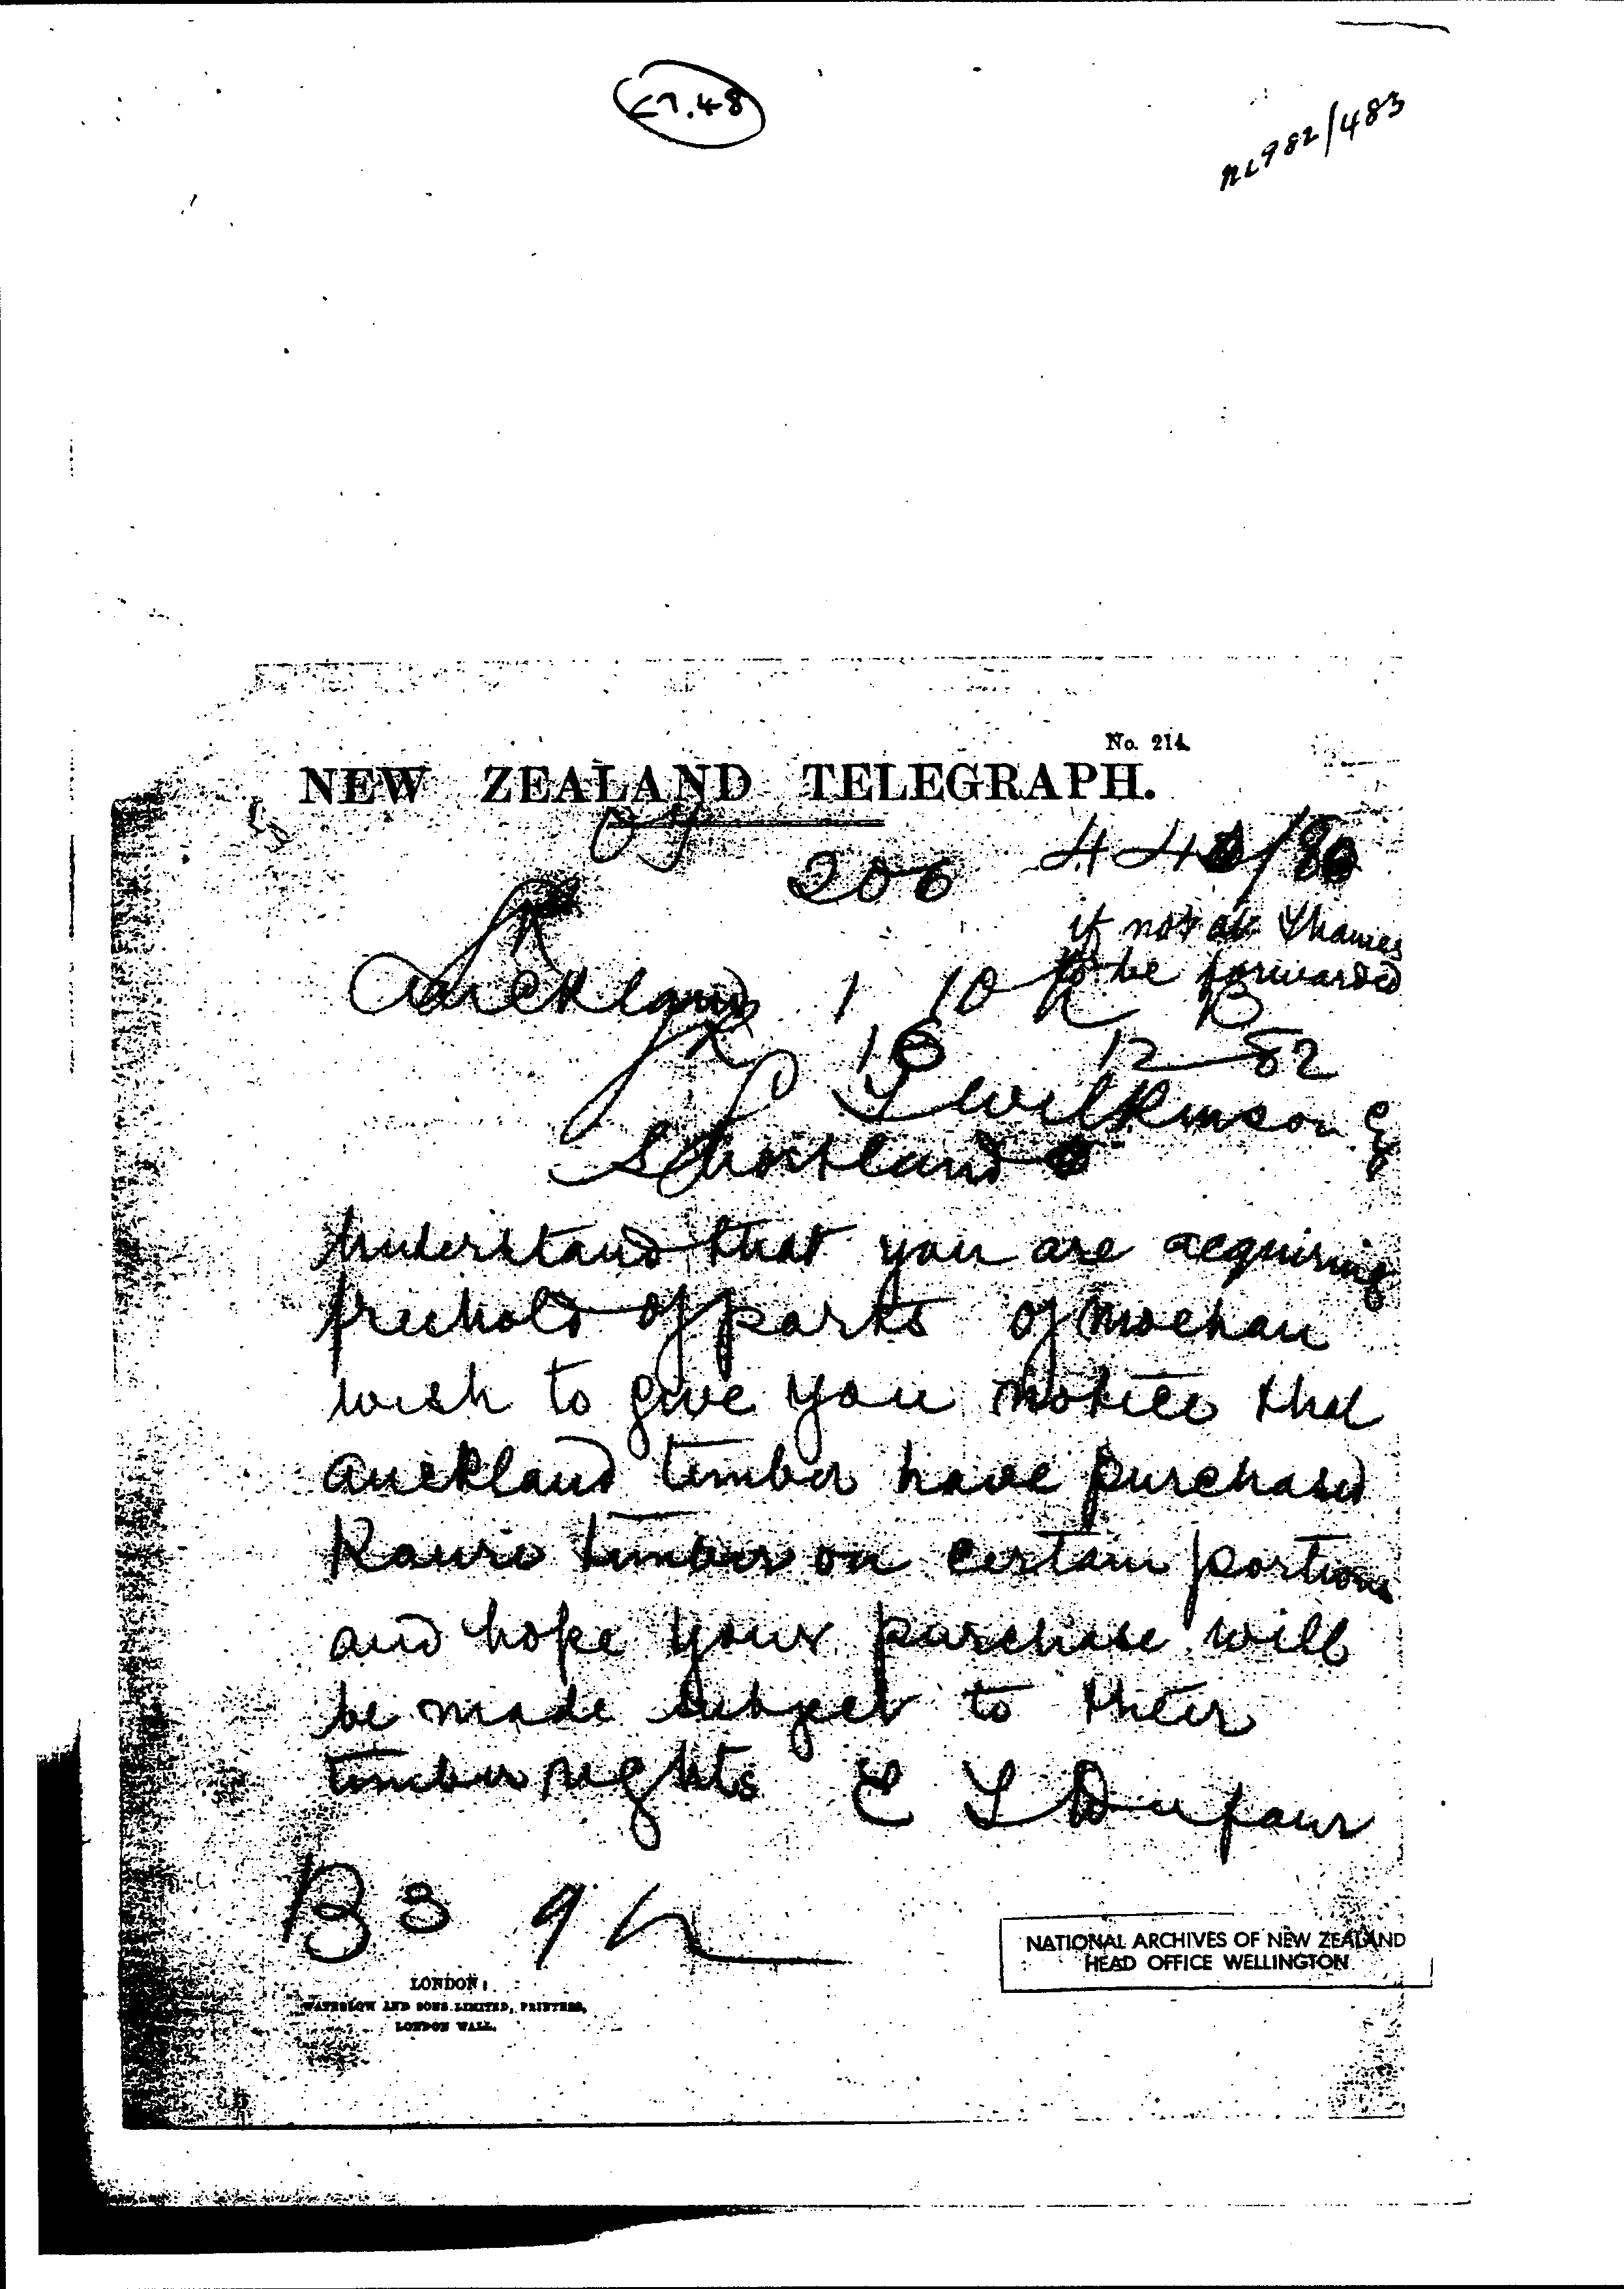 NL 982/483
No. 214
NEW ZEALAND TELEGRAPH.
206
if not at Thames
to be forwarded
Auckland 1 10
16 12 82
Wilkinson
Shortland
Understand that you are acquiring
freehold of parts of Moehau
wish to give you notice that
Auckland timber have purchased
Kauri timber on certain portions
and hope your purchase will
be made subject to their
timber rights E T Dufaur
LONDON:
WATERLOW AND SONS LIMITED, PRINTERS,
LONDON WALL.
NATIONAL ARCHIVES OF NEW ZEALAND
HEAD OFFICE WELLINGTON